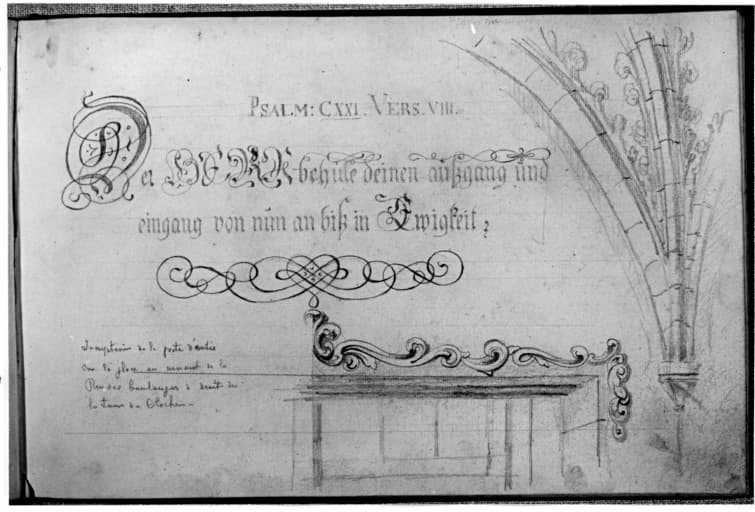 PSALM: CXXI. VERS. VIII.
Der HERR behüte deinen außgang und
eingang von nun an biß in Ewigkeit
Inscription de la porte d'entrée
sur la place en venant de la
Rue des Boulangers à droite de
la tour du Clocher